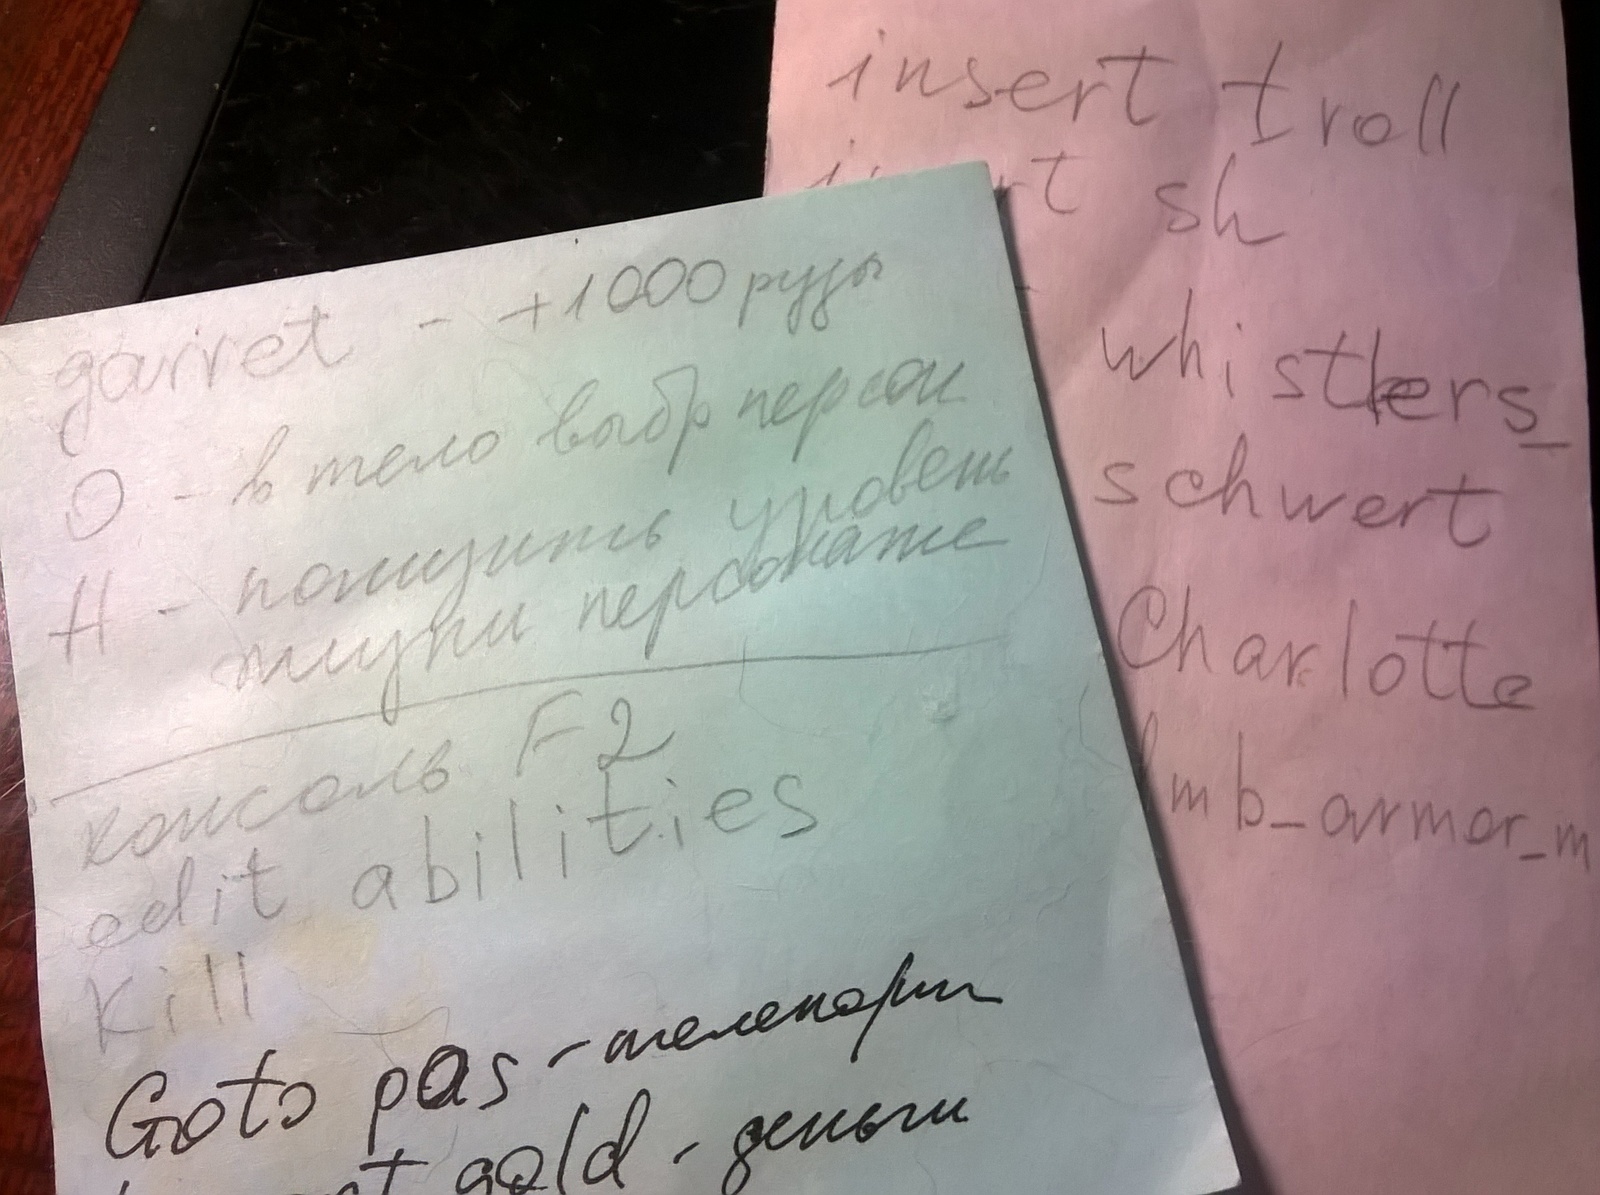 garret - +1000 руды
O - в тело выбр персон
H - понизить уровень
жизни персонаже
консоль F2
edit abilities
Kill
Goto pos - телепорт
gold - деньги
insert troll
sh
whistlers_
schwert
Charlotte
armor_m